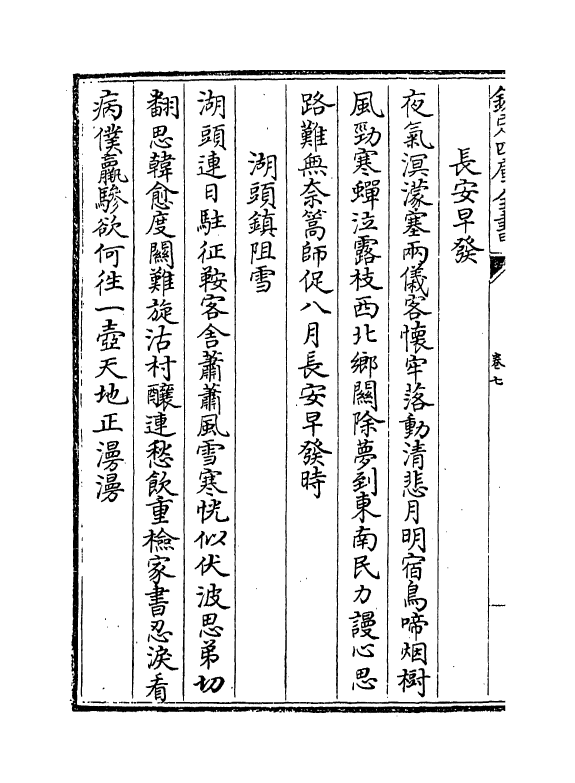 長安早發
夜氣溟濛塞兩儀客懷牢落動清悲月明宿鳥啼烟樹
風勁寒蟬泣露枝西北鄉關除夢到東南民力謾心思
路難無奈篙師促八月長安早發時
湖頭鎮阻雪
湖頭連日駐征鞍客舍蕭蕭風雪寒恍似伏波思弟切
翻思韓愈度關難旋沽村釀連愁飲重檢家書忍淚看
病僕羸驂欲何往一壺天地正漫漫
卷七